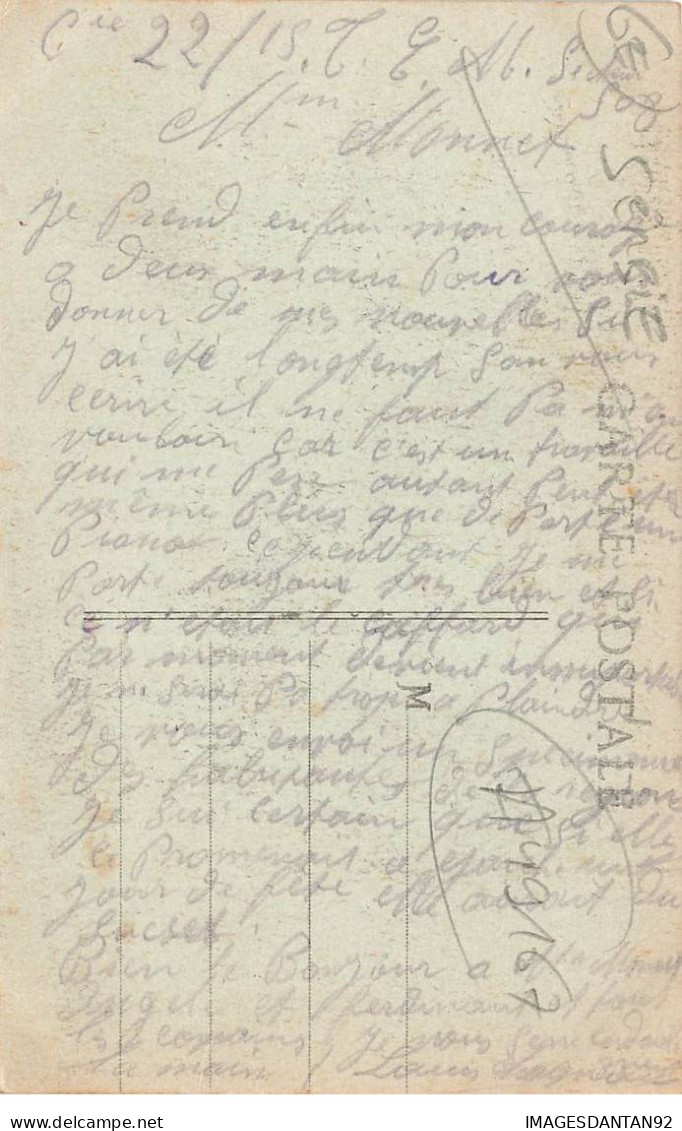 Cie 22/15. T. E.
Mme Monnet
Je Prend enfin mon courage
a deux main Pour vous
donner de mes nouvelles Si
J'ai été longtemp San vous
ecrire il ne faut Pa m'en
vouloir Car c'est un travaille
qui me Pese autant Peut être
même Plus que de Porte un
Piano cependant Je me
Porte toujour très bien et Si
ce n'était le caffard qui
Par moment devient
Je ne serai Pa trop a Plaindre
Je vous envoi un Specimen
des habitantes de la region
Je Sui certain que Si elle
ce Promenait a un
Jour de fête elle aurait du
Succet.
Bien le Bonjour a Mr Monnet
Angele et Ferdinant et tout
les copains Je vous Serre
la main Louis
CARTE POSTALE
M
Serbie
IMAGESDANTAN92